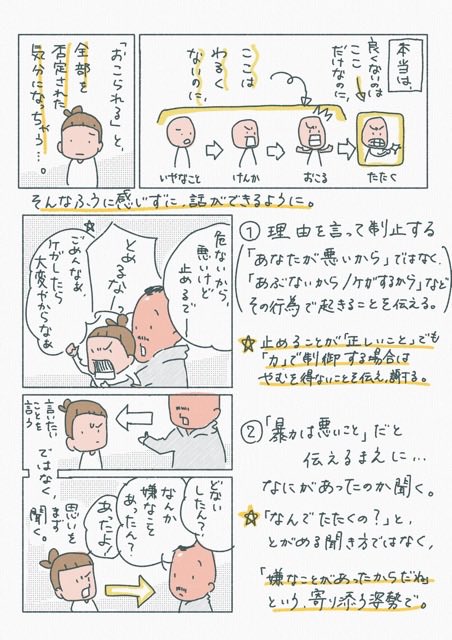 本当は、
良くないのは
ここ
だけなのに、
ここは
わるく
ないのに、
いやなこと
けんか
おこる
たたく
「おこられる」と、
全部を
否定された
気分になっちゃう…。
そんなふうに感じずに、話ができるように。
① 理由を言って制止する
「あなたが悪いから」ではなく、
「あぶないから/ケガするから」など
その行為で起きることを伝える。
☆止めることが「正しいこと」でも
「力」で制御する場合は
やむを得ないことを伝え、謝する。
危ないから、
悪いけど
止めるで―
とめるなっ
ごめんなぁ、
ケガしたら
大変やからなぁ
② 「暴力は悪いこと」だと
伝えるまえに…
なにがあったのか聞く。
☆「なんでたたくの?」と、
とがめる聞き方ではなく、
「嫌なことがあったからだね」
という、寄り添う姿勢で。
言いたい
ことを
言う
ではなく、
思いを
まず
聞く。
どない
したん?
なんか
嫌なこと
あったん?
あったよ!